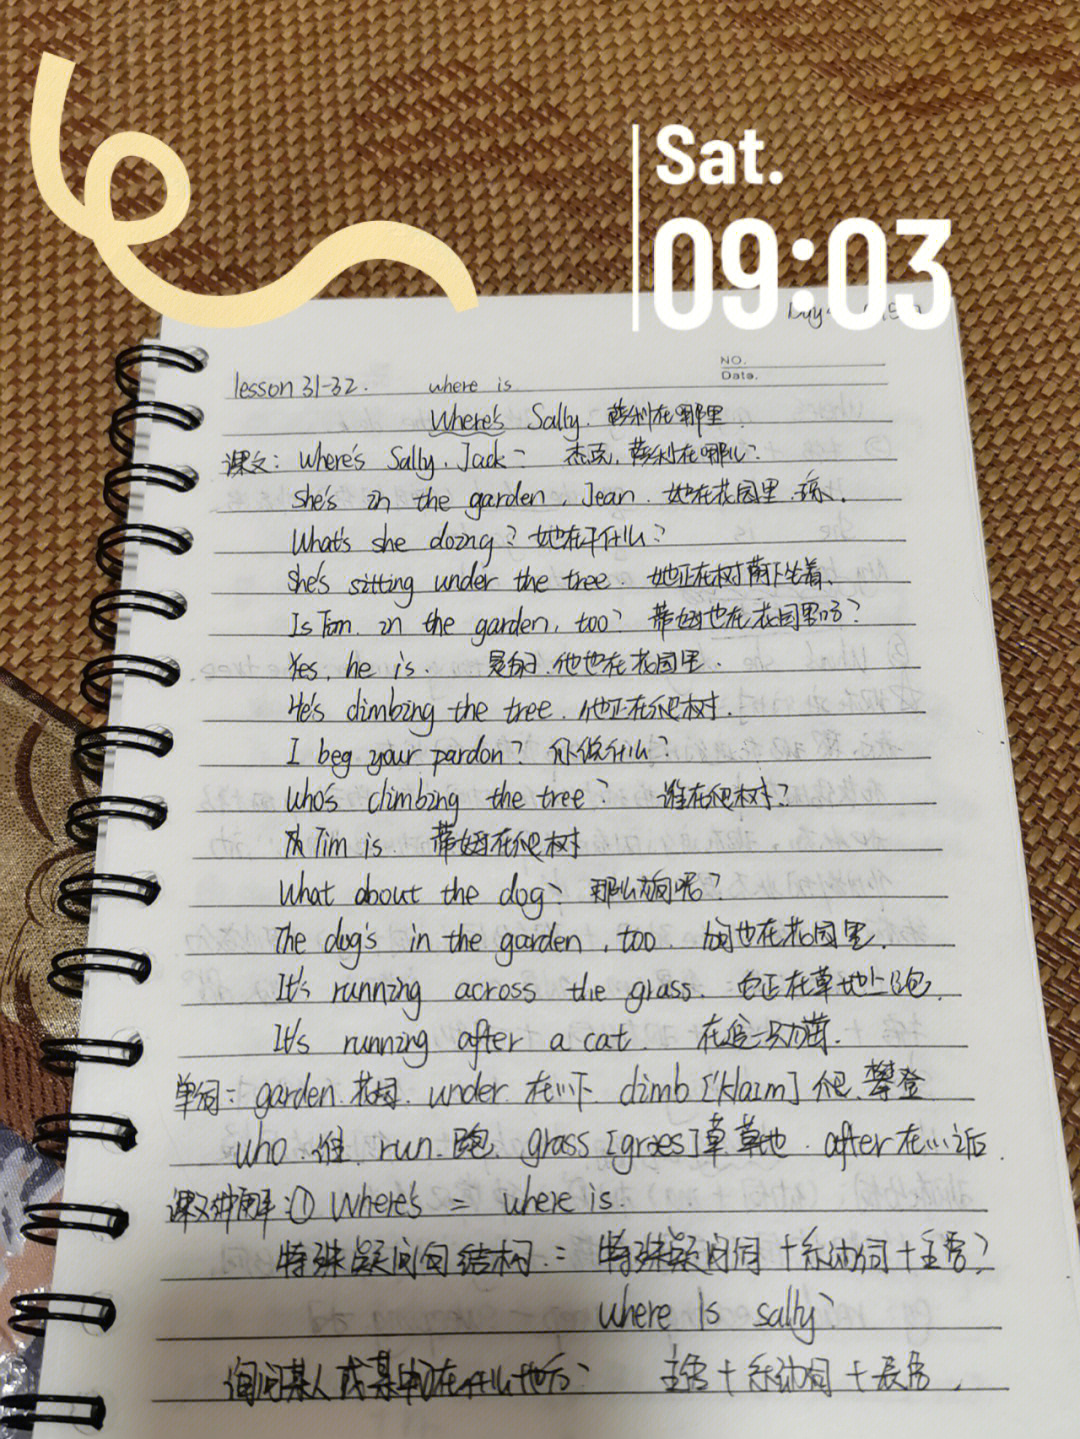 Sat.
09:03
Day
NO.
Date.
lesson 31-32. where is
Where's Sally. 萨利在哪里
课文: Where's Sally, Jack? 杰克,萨利在哪儿?
She's in the garden, Jean. 她在花园里,琼.
What's she doing? 她在干什么?
She's sitting under the tree 她正在树荫下坐着.
Is Tim in the garden, too? 蒂姆也在花园里吗?
Yes, he is. 是的,他也在花园里.
He's climbing the tree. 他正在爬树.
I beg your pardon? 你说什么?
Who's climbing the tree? 谁在爬树?
Tim is. 蒂姆在爬树
What about the dog? 那么狗呢?
The dog's in the garden, too 狗也在花园里.
It's running across the grass. 它正在草地上跑.
It's running after a cat. 在追一只猫.
单词: garden 花园. under 在...下 climb ['klaim] 爬、攀登
who 谁 run. 跑 grass [graes] 草 草地. after 在...之后.
课文讲解: ① Where's = where is.
特殊疑问句结构: = 特殊疑问词+系动词+主语?
where Is sally?
询问某人或某事物在什么地方? 主语+系动词+表语.